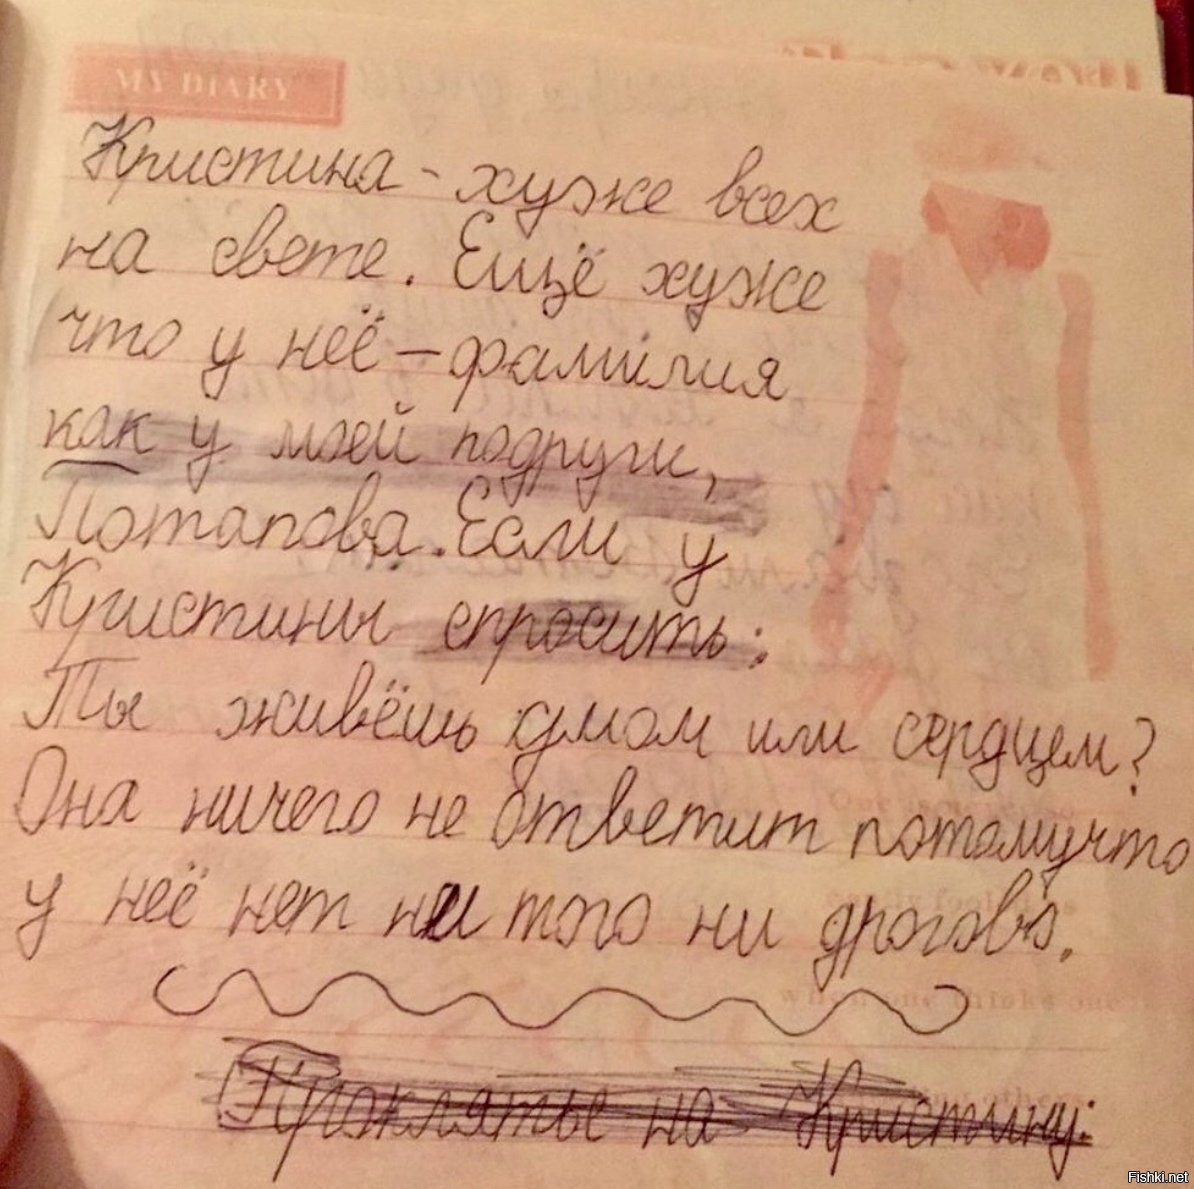 MY DIARY
Кристина - хуже всех
на свете. Ещё хуже
что у неё - фамилия
как у моей подруги,
Потапова. Если у
Кристины спросить:
Ты живёшь умом или сердцем?
Она ничего не ответит потомучто
у неё нет ни того ни дрогово.
Проклятье на Кристину:
Fishki.net